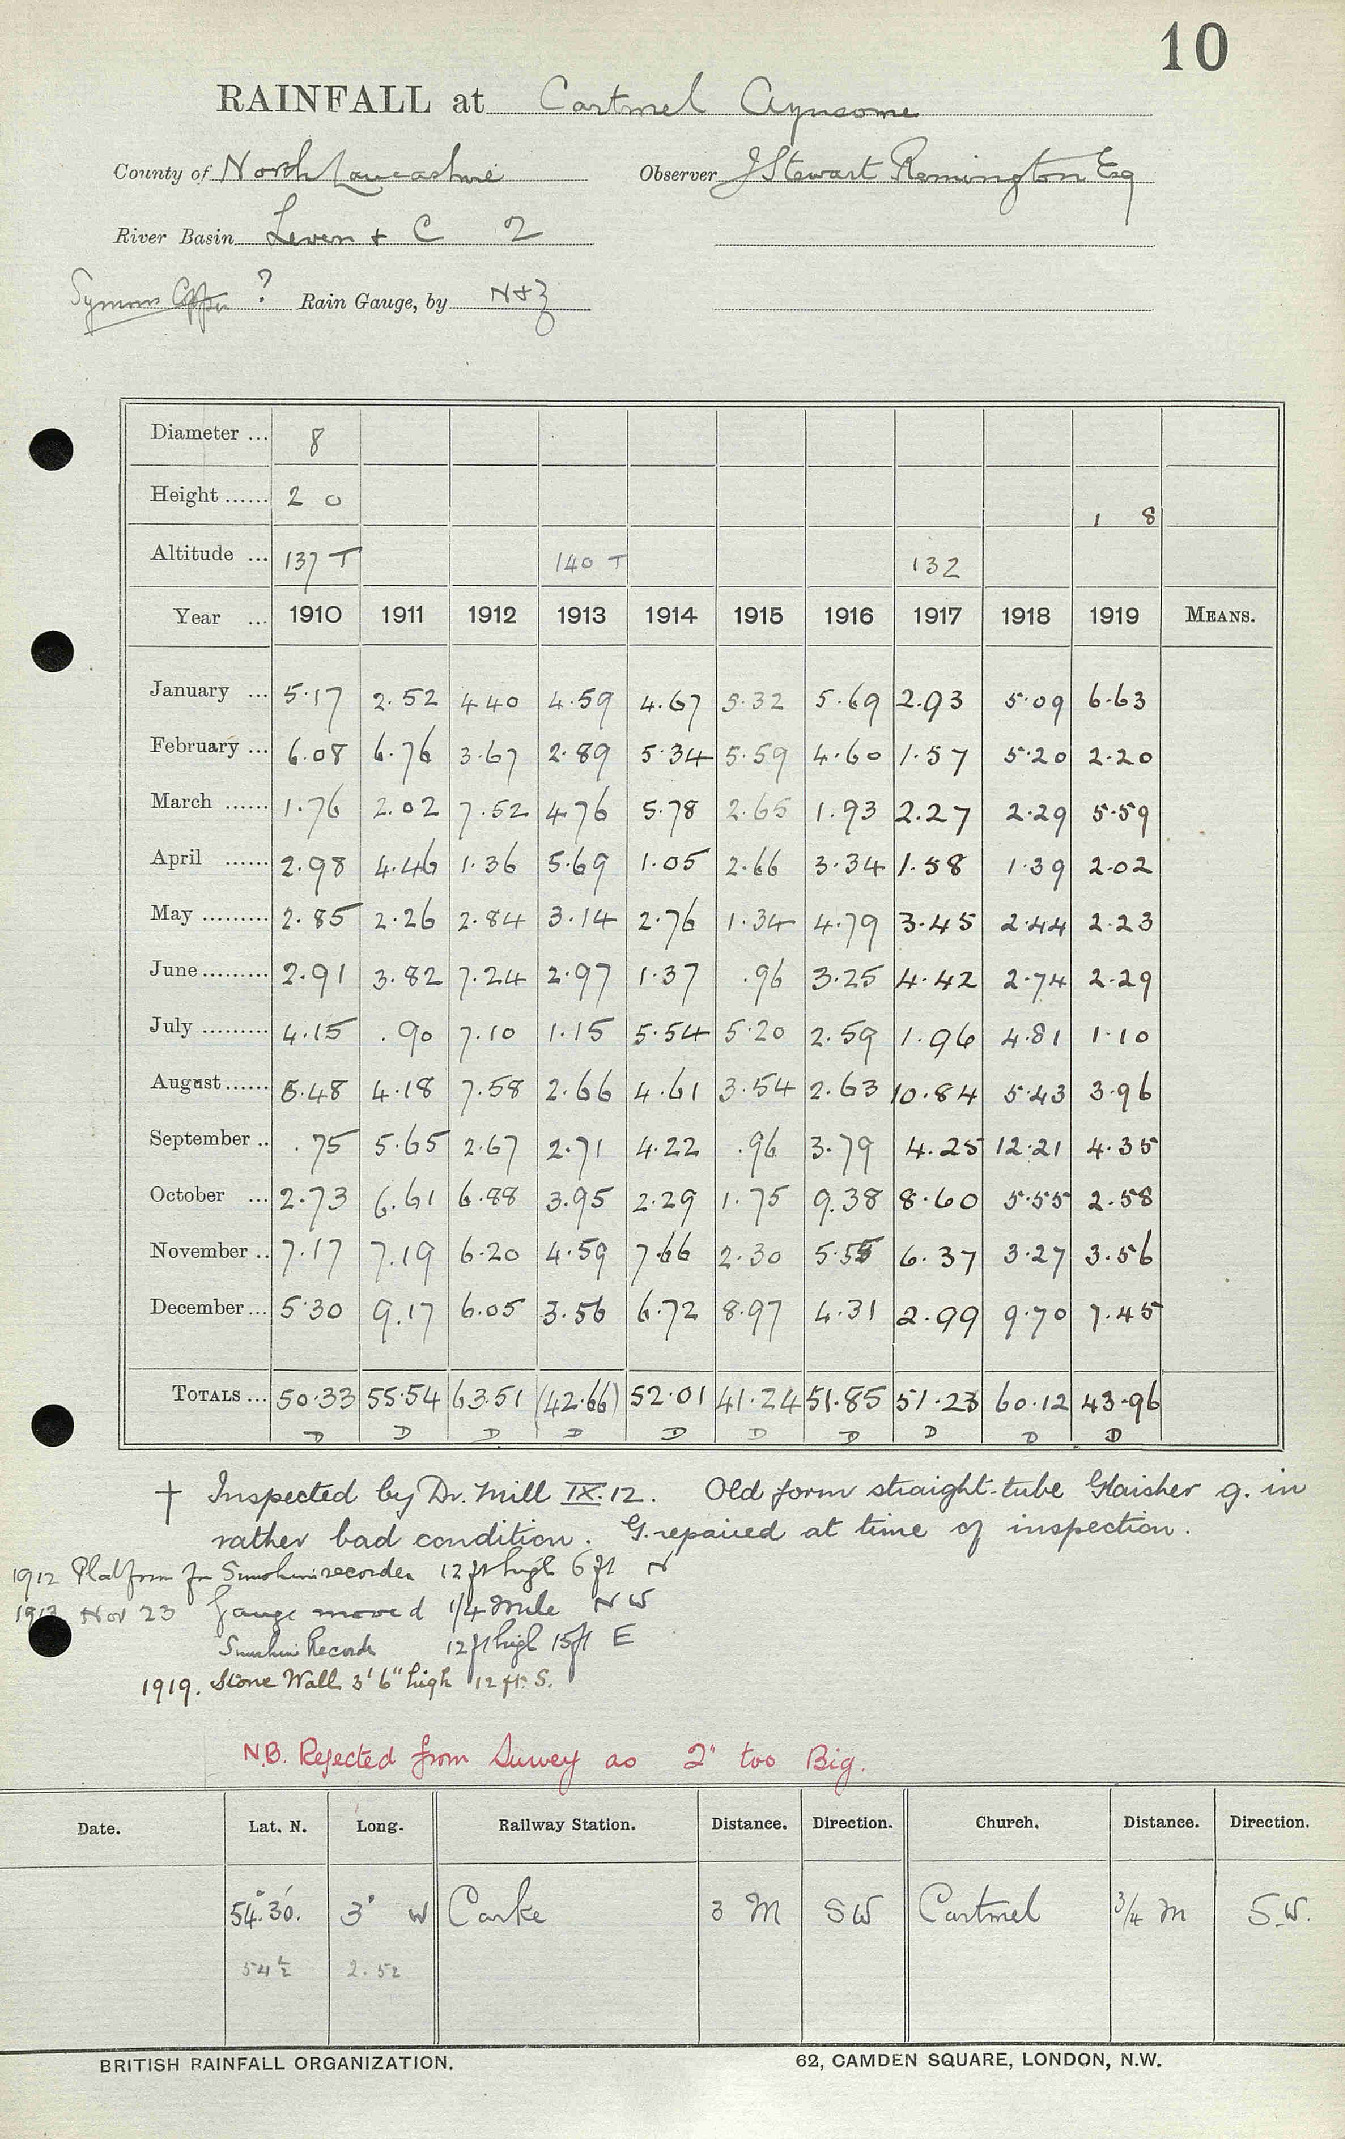 10
RAINFALL at Cartmel Aynsome
County of North Lancashire Observer J Stewart Remington Esq
River Basin Leven + C 2
Symons Copper ? Rain Gauge, by N+Z
Diameter ... 8
Height ...... 2 0 1 8
Altitude ... 137 T 140 T 132
Year ... 1910 1911 1912 1913 1914 1915 1916 1917 1918 1919 MEANS.
January ... 5.17 2.52 4.40 4.59 4.67 5.32 5.69 2.93 5.09 6.63
February ... 6.08 6.76 3.67 2.89 5.34 5.59 4.60 1.57 5.20 2.20
March ...... 1.76 2.02 7.52 4.76 5.78 2.65 1.93 2.27 2.29 5.59
April ...... 2.98 4.46 1.36 5.69 1.05 2.66 3.34 1.58 1.39 2.02
May ......... 2.85 2.26 2.84 3.14 2.76 1.34 4.79 3.45 2.44 2.23
June ......... 2.91 3.82 7.24 2.97 1.37 .96 3.25 4.42 2.74 2.29
July ......... 4.15 .90 7.10 1.15 5.54 5.20 2.59 1.96 4.81 1.10
August ...... 8.48 4.18 7.58 2.66 4.61 3.54 2.63 10.84 5.43 3.96
September .. .75 5.65 2.67 2.71 4.22 .96 3.79 4.25 12.21 4.35
October ... 2.73 6.61 6.88 3.95 2.29 1.75 9.38 8.60 5.55 2.58
November .. 7.17 7.19 6.20 4.59 7.66 2.30 5.55 6.37 3.27 3.56
December ... 5.30 9.17 6.05 3.56 6.72 8.97 4.31 2.99 9.70 7.45
TOTALS ... 50.33 55.54 63.51 (42.66) 52.01 41.24 51.85 51.23 60.12 43.96
D D D D D D D D D D
† Inspected by Dr. Mill IX.12. Old form straight-tube Glaisher g. in
rather bad condition. G. repaired at time of inspection.
1912 Platform for Sunshine recorder 12 ft high 6 ft N
1913 Nov 23 Gauge moved 1/4 mile NW
Sunshine Recorder 12 ft high 15 ft E
1919. Stone Wall 3' 6" high 12 ft. S.
N.B. Rejected from Survey as 2" too Big.
Date. Lat. N. Long. Railway Station. Distance. Direction. Church. Distance. Direction.
54° 30'. 3° W Carke 3 M SW Cartmel 3/4 m S.W.
54 ½ 2.52
BRITISH RAINFALL ORGANIZATION. 62, CAMDEN SQUARE, LONDON, N.W.